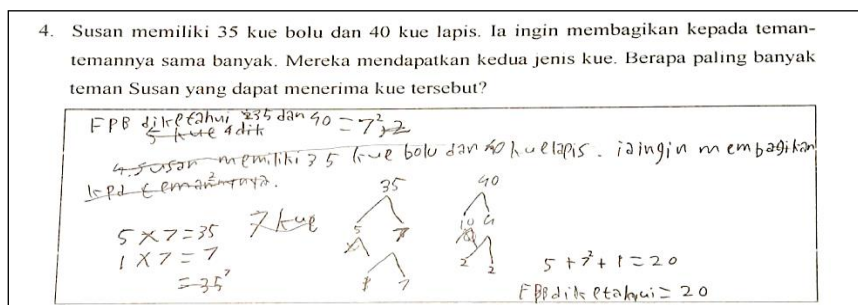 4. Susan memiliki 35 kue bolu dan 40 kue lapis. Ia ingin membagikan kepada teman-
temannya sama banyak. Mereka mendapatkan kedua jenis kue. Berapa paling banyak
teman Susan yang dapat menerima kue tersebut?
FPB diketahui 35 dan 40 = 7²
5 kue
4. Susan memiliki 35 kue bolu dan 40 kue lapis. ia ingin membagikan
35 40
5 × 7 = 35 7 kue
5 7 10 4
1 × 7 = 7
2 2
= 35
7
5 + 7² + 1 = 20
FPB diketahui = 20